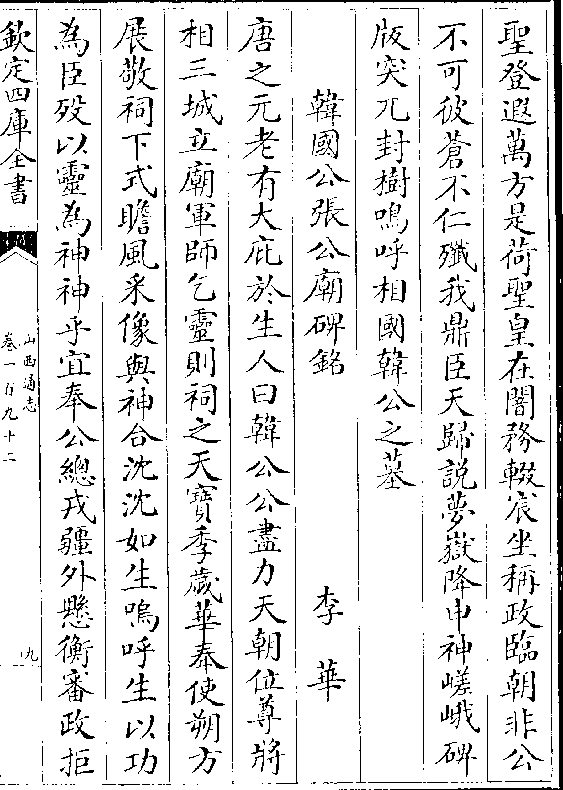 聖登遐萬方是荷聖皇在闇務輟宸坐稱政臨朝非公
不可彼蒼不仁殲我鼎臣天歸説夢嶽降申神嵯峨碑
版突兀封樹嗚呼相國韓公之墓
韓國公張公廟碑銘 李華
唐之元老有大庇於生人曰韓公公盡力天朝位尊將
相三城立廟軍師乞靈則祠之天寶季歲華奉使朔方
展敬祠下式瞻風采像與神合沈沈如生嗚呼生以功
為臣殁以靈為神神乎宜奉公總戎疆外懸衡審政拒
欽定四庫全書
山西通志
卷一百九十二
九